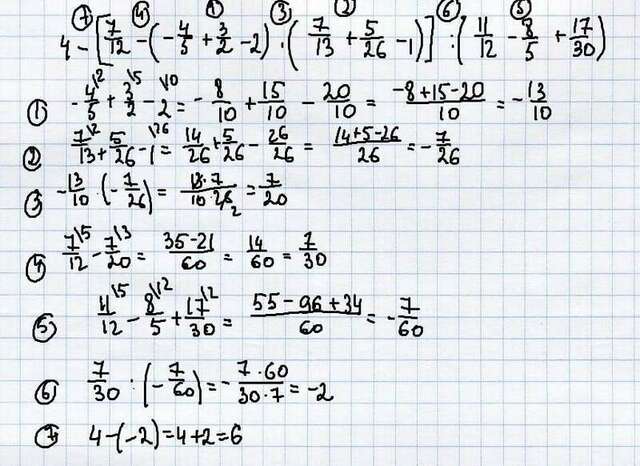 ⑦ ④ ① ③ ② ⑥ ⑤
4 - [7/12 - (-4/5 + 3/2 - 2) · (7/13 + 5/26 - 1)] : (11/12 - 8/5 + 17/30)
① -4\2/5 + 3\5/2 - 2\10 = -8/10 + 15/10 - 20/10 = (-8+15-20)/10 = -13/10
② 7\2/13 + 5/26 - 1\26 = 14/26 + 5/26 - 26/26 = (14+5-26)/26 = -7/26
③ -13/10 · (-7/26) = (13·7)/(10·26 2) = 7/20
④ 7\5/12 - 7\3/20 = (35-21)/60 = 14/60 = 7/30
⑤ 11\5/12 - 8\12/5 + 17\2/30 = (55-96+34)/60 = -7/60
⑥ 7/30 : (-7/60) = -(7·60)/(30·7) = -2
⑦ 4-(-2)=4+2=6